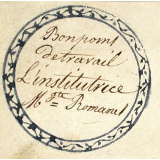 Bon point
de travail
L'institutrice
Romanet